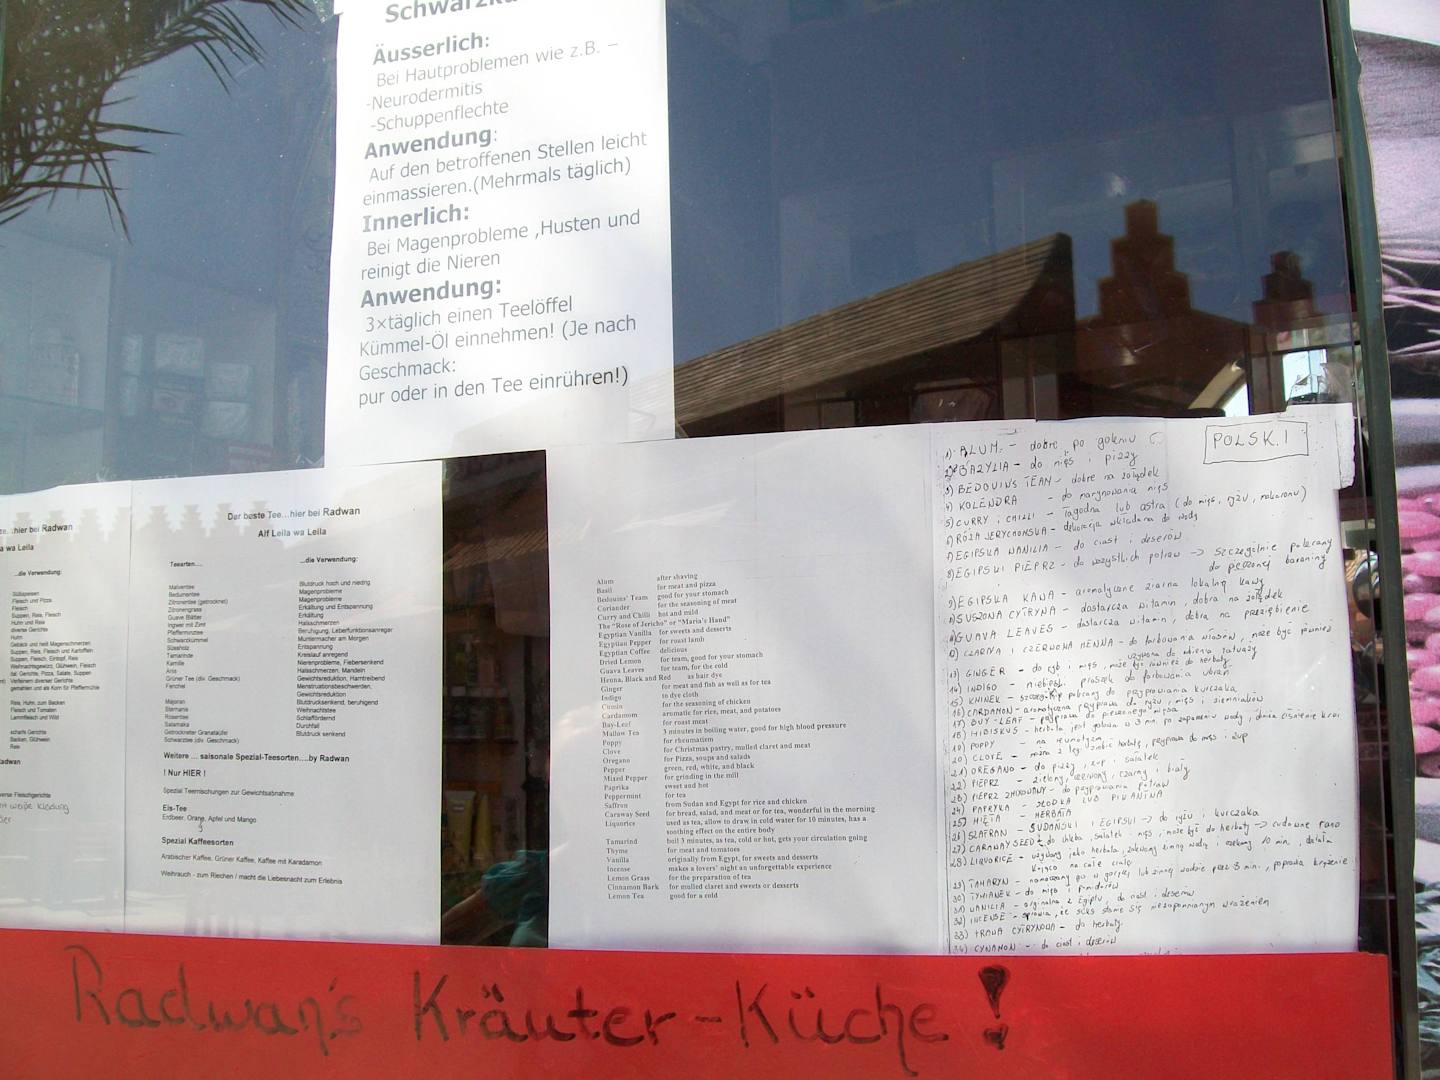 Äusserlich:
Bei Hautproblemen wie z.B. –
-Neurodermitis
-Schuppenflechte
Anwendung:
Auf den betroffenen Stellen leicht
einmassieren.(Mehrmals täglich)
Innerlich:
Bei Magenprobleme ,Husten und
reinigt die Nieren
Anwendung:
3×täglich einen Teelöffel
Kümmel-Öl einnehmen! (Je nach
Geschmack:
pur oder in den Tee einrühren!)
hier bei Radwan
wa Leila
...die Verwendung:
Süßspeisen
Fleisch und Pizza
Fleisch
Suppen, Reis, Fleisch
Huhn und Reis
diverse Gerichte
Huhn
Gebäck und heiß Magenschmerzen
Suppen, Reis, Fleisch und Kartoffeln
Suppen, Fleisch, Eintopf, Reis
Weihnachtsgewürz, Glühwein, Fleisch
Ital. Gerichte, Pizza, Salate, Suppen
Verfeinern diverser Gerichte
gemahlen und als Korn für Pfeffermühle
Reis, Huhn, zum Backen
Fleisch und Tomaten
Lammfleisch und Wild
scharfe Gerichte
Backen, Glühwein
Reis
Radwan
diverse Fleischgerichte
weiße Kleidung
Der beste Tee...hier bei Radwan
Alf Leila wa Leila
Teearten.... ...die Verwendung:
Malventee Blutdruck hoch und niedrig
Beduinentee Magenprobleme
Zitronentee (getrocknet) Magenprobleme
Zitronengrass Erkältung und Entspannung
Guave Blätter Erkältung
Ingwer mit Zimt Halsschmerzen
Pfefferminztee Beruhigung, Leberfunktionsanreger
Schwarzkümmel Muntermacher am Morgen
Süssholz Entspannung
Tamarinde Kreislauf anregend
Kamille Nierenprobleme, Fiebersenkend
Anis Halsschmerzen, Mandeln
Grüner Tee (div. Geschmack) Gewichtsreduktion, Harntreibend
Fenchel Menstruationsbeschwerden,
Gewichtsreduktion
Majoran Blutdrucksenkend, beruhigend
Sternanis Weihnachtstee
Rosentee Schlaffördernd
Salamaka Durchfall
Getrockneter Granatäfel Blutdruck senkend
Schwarztee (div. Geschmack)
Weitere ... saisonale Spezial-Teesorten....by Radwan
! Nur HIER !
Spezial Teemischungen zur Gewichtsabnahme
Eis-Tee
Erdbeer, Orang, Apfel und Mango
Spezial Kaffeesorten
Arabischer Kaffee, Grüner Kaffee, Kaffee mit Karadamon
Weihrauch - zum Riechen / macht die Liebesnacht zum Erlebnis
Alum after shaving
Basil for meat and pizza
Bedouins' Team good for your stomach
Coriander for the seasoning of meat
Curry and Chilli hot and mild
The “Rose of Jericho” or “Maria's Hand”
Egyptian Vanilla for sweets and desserts
Egyptian Pepper for roast lamb
Egyptian Coffee delicious
Dried Lemon for team, good for your stomach
Guava Leaves for team, for the cold
Henna, Black and Red as hair dye
Ginger for meat and fish as well as for tea
Indigo to dye cloth
Cumin for the seasoning of chicken
Cardamom aromatic for rice, meat, and potatoes
Bay-Leef for roast meat
Mallow Tea 3 minutes in boiling water, good for high blood pressure
Poppy for rheumatism
Clove for Christmas pastry, mulled claret and meat
Oregano for Pizza, soups and salads
Pepper green, red, white, and black
Mixed Pepper for grinding in the mill
Paprika sweet and hot
Peppermint for tea
Saffron from Sudan and Egypt for rice and chicken
Caraway Seed for bread, salad, and meat or for tea, wonderful in the morning
Liquorice used as tea, allow to draw in cold water for 10 minutes, has a
soothing effect on the entire body
Tamarind boil 3 minutes, as tea, cold or hot, gets your circulation going
Thyme for meat and tomatoes
Vanilla originally from Egypt, for sweets and desserts
Incense makes a lovers' night an unforgettable experience
Lemon Grass for the preparation of tea
Cinnamon Bark for mulled claret and sweets or desserts
Lemon Tea good for a cold
POLSKI
1) ALUM - dobre po goleniu
2) BAZYLIA - do mięs i pizzy
3) BEDOUINS TEAN - dobre na żołądek
4) KOLENDRA - do marynowania mięs
5) CURRY i CHILLI - łagodna lub ostra (do mięs, ryżu, makaronu)
6) RÓŻA JERYCHOŃSKA - dekoracja wkładana do wody
7) EGIPSKA WANILIA - do ciast i deserów
8) EGIPSKI PIEPRZ - do wszystkich potraw → szczególnie polecany
do pieczonej baraniny
9) EGIPSKA KAWA - aromatyczne ziarna lokalnej kawy
SUSZONA CYTRYNA - dostarcza witamin, dobra na żołądek
GUAVA LEAVES - dostarcza witamin, dobra na przeziębienie
CZARNA i CZERWONA HENNA - do farbowania włosów, może być również
używana do robienia tatuaży
13) GINGER - do ryb i mięs, może być również do herbaty
14) INDIGO - niebieski proszek do farbowania ubrań
15) KMINEK - szczególnie polecany do przyprawiania kurczaka
16) CARDAMON - aromatyczna przyprawa do ryżu, mięs i ziemniaków
17) BUY-LEAF - przyprawa do pieczonego mięsa
18) HIBISKUS - herbata jest gotowa w 3 min. po zaparzeniu wody, obniża ciśnienie krwi
19) POPPY - na reumatyzm
20) CLOVE - można z tego zrobić herbatę, przyprawa do mięs i zup
21) OREGANO - do pizzy, zup i sałatek
22) PIEPRZ - zielony, czerwony, czarny i biały
23) PIEPRZ ZMIXOWANY - do przyprawiania potraw
24) PAPRYKA - SŁODKA LUB PIKANTNA
25) MIĘTA - HERBATA
26) SZAFRAN - SUDAŃSKI i EGIPSKI → do ryżu i kurczaka
27) CARAWAY SEED - do chleba, sałatek i mięs, może być do herbaty → cudowne rano
28) LIQUORICE - używany jako herbata, zalewany zimną wodą, czekamy 10 min, działa
kojąco na całe ciało
29) TAMARYN - namoczony go w gorącej lub zimnej wodzie przez 3 min., poprawia krążenie
30) TYMIANEK - do mięs i pomidorów
31) WANILIA - oryginalna z Egiptu, do ciast i deserów
32) INCENSE - sprawia, że seks stanie się niezapomnianym wrażeniem
33) TRAWA CYTRYNOWA - do herbaty
34) CYNAMON - do ciast i deserów
Radwan's Kräuter-Küche!